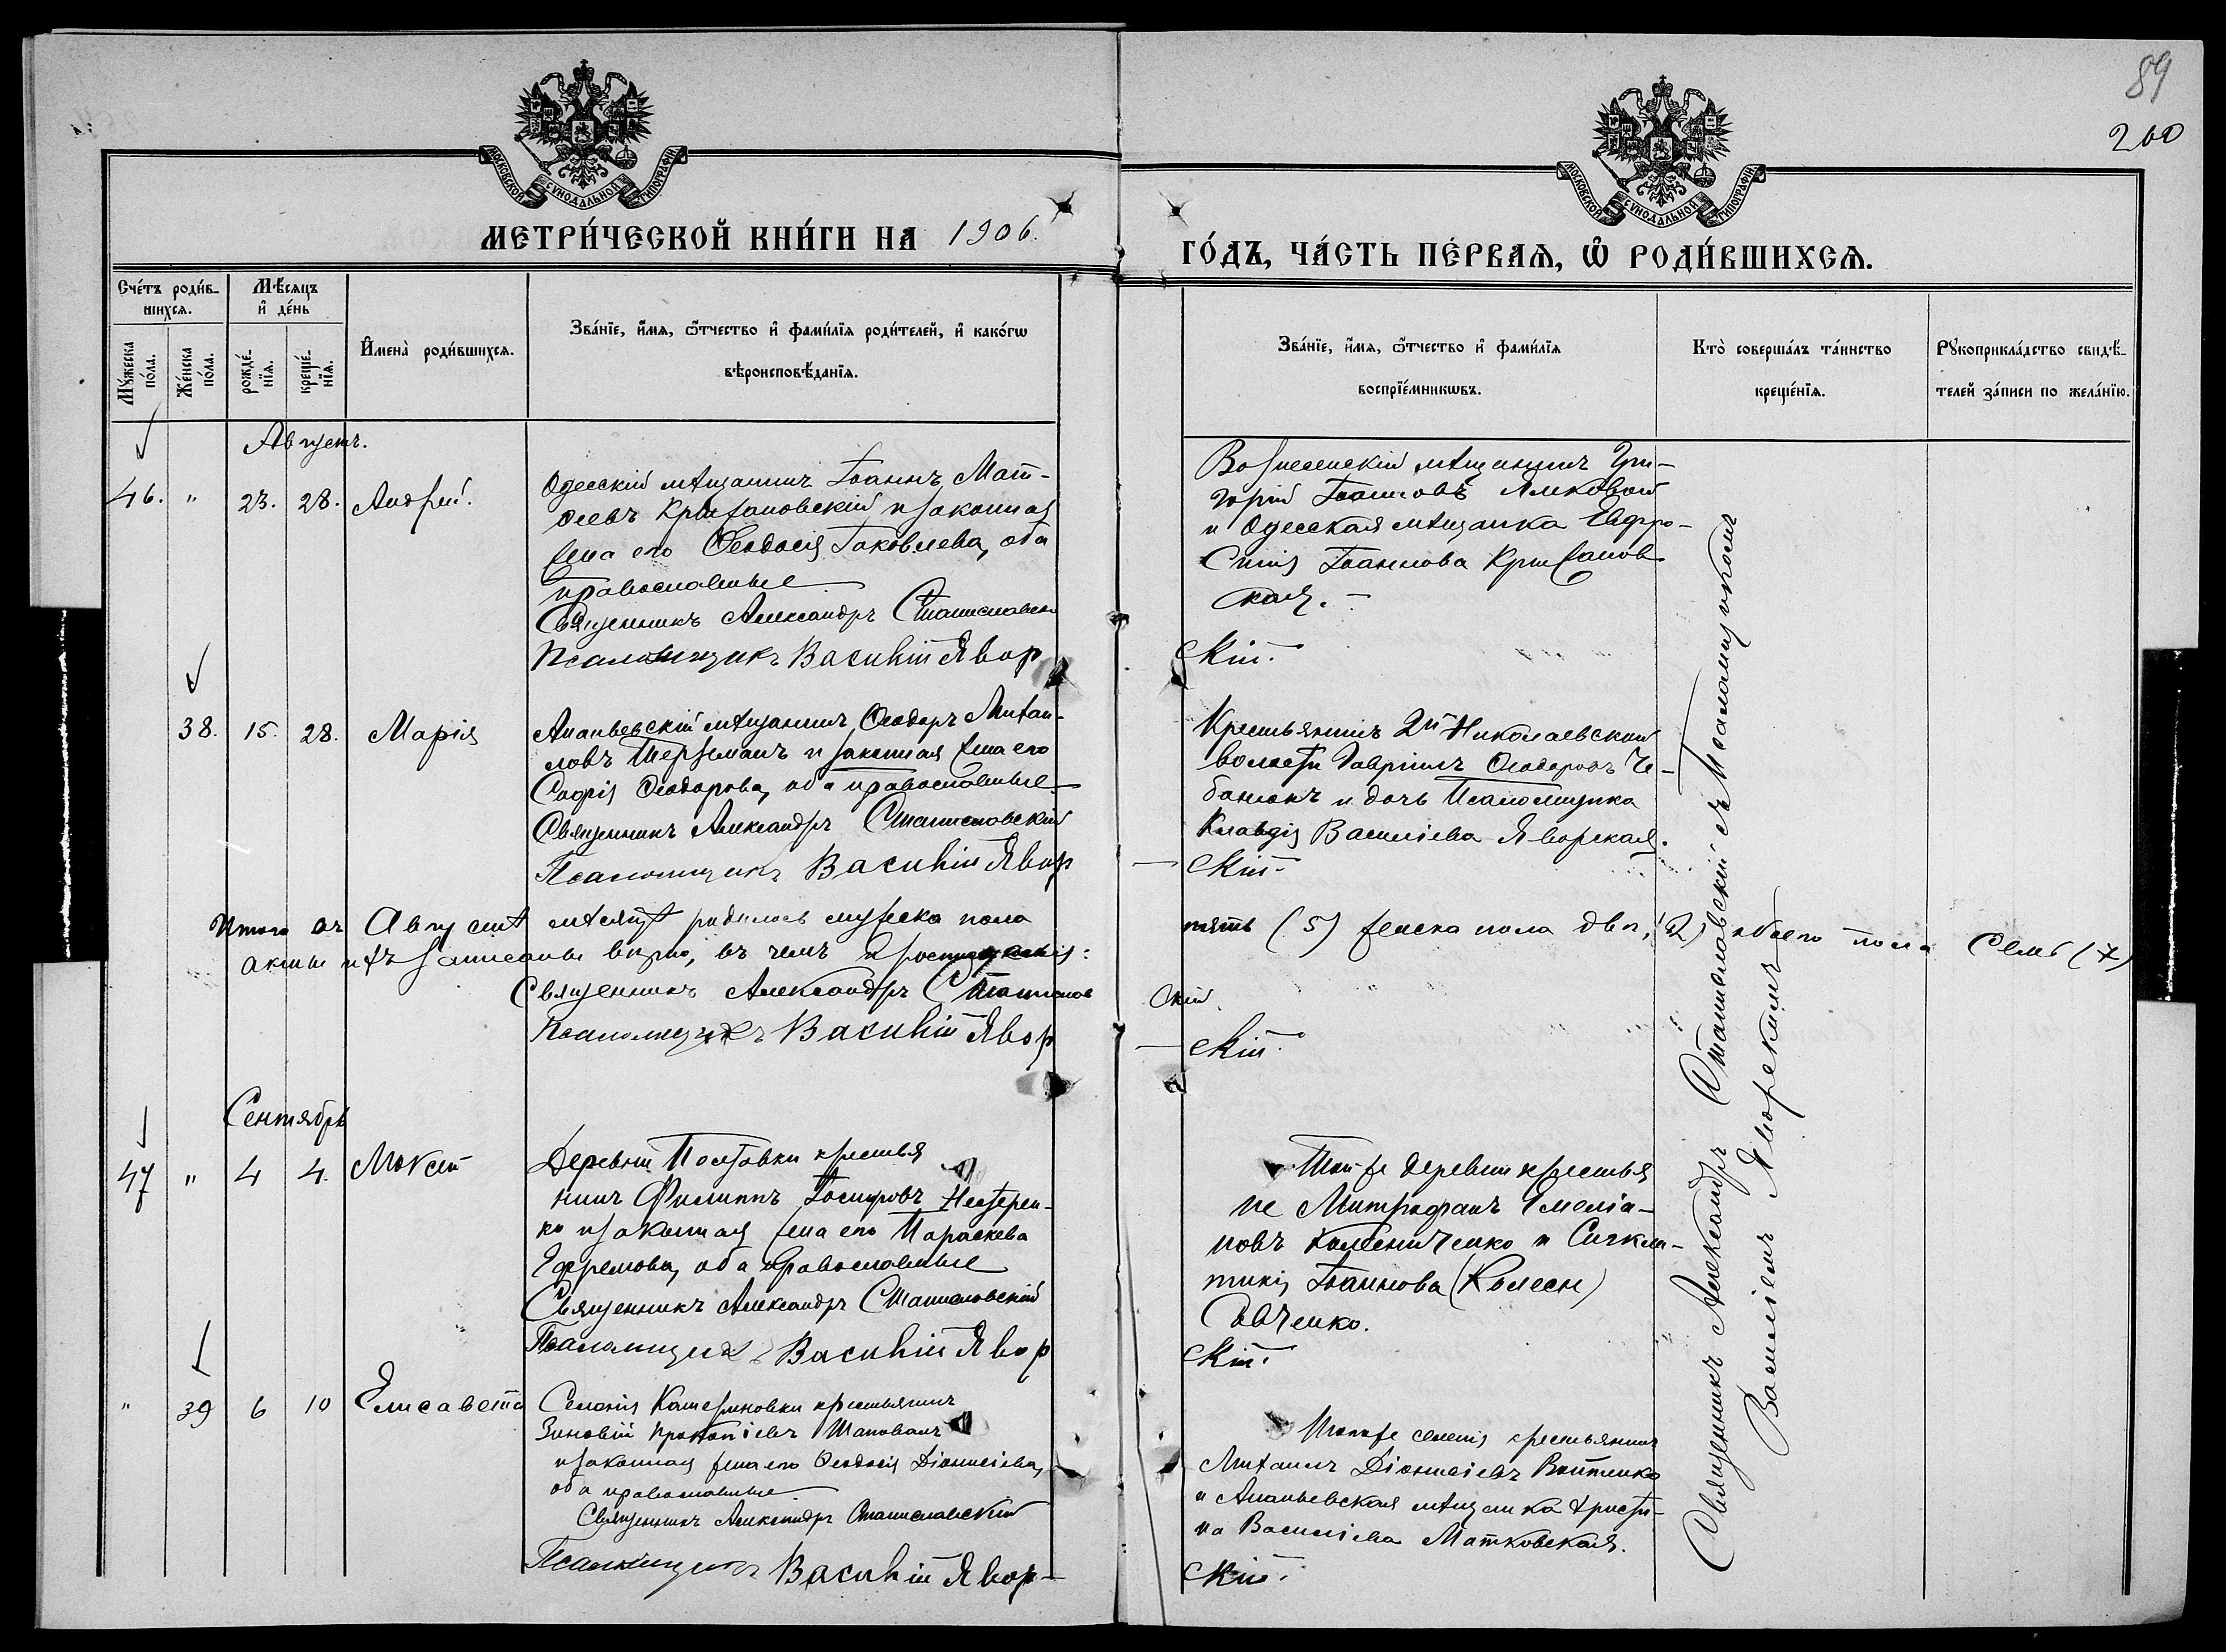 89
260
МОСКОВСКОЙ СѴНОДАЛЬНОЙ ТИПОГРАФІИ
МОСКОВСКОЙ СѴНОДАЛЬНОЙ ТИПОГРАФІИ
МЕТРИ́ЧЕСКОЙ КНИ́ГИ НА 1906.
ГО́ДЪ, ЧА́СТЬ ПЕ́РВАѦ, Ѡ҆ РОДИ́ВШИХСѦ.
Сче́тъ роди́в-
шихсѧ.
Мꙋ́жеска
по́ла.
Же́нска
по́ла.
Мѣ́сѧцъ
и҆ де́нь
рожде́-
нїѧ.
креще́-
нїѧ.
И҆мена̀ роди́вшихсѧ.
Зва́нїе, и҆́мѧ, ѻ҆́тчество и҆ фами́лїѧ роди́телей, и҆ како́гѡ
вѣроисповѣ́данїѧ.
Зва́нїе, и҆́мѧ, ѻ҆́тчество и҆ фами́лїѧ
воспрїе́мникѡвъ.
Кто̀ соверша́лъ та́инство
креще́нїѧ.
Рꙋкоприкла́дство свидѣ́-
телей за́писи по жела́нїю.
Августъ.
46. " 23. 28. Андрей.
Одесскій мѣщанинъ Іоаннъ Мат-
ѳеевъ Крижановскій и законная
жена его Ѳеодосія Іаковлева, оба
православные
Священникъ Александръ Станиславск
Псаломщикъ Василій Явор
Вознесенскій мѣщанинъ Гри-
горій Іоанновъ Ямковой
и Одесская мѣщанка Евфро-
синія Іоаннова Крижанов
ская.
скій.
38. 15. 28. Марія
Ананьевскій мѣщанинъ Ѳеодоръ Михаи-
ловъ Шерземанъ и законная жена его
Софія Ѳеодорова, оба православные
Священникъ Александръ Станиславскій
Псаломщикъ Василій Явор
Крестьянинъ 2й Николаевской
волости Гавріилъ Ѳеодоровъ Че-
банюкъ и дочь Псаломщика
Клавдія Василіева Яворская.
скій.
Итого въ Августѣ мѣсяцѣ родилось мужеска пола
пять (5) женска пола два (2) обоего пола семь (7)
акты ихъ записаны вѣрно, въ чемъ
Священникъ Александръ Станислав
скій
Псаломщикъ Василій Явор
скій.
Сентябрь
47 " 4 4. Мокей
Деревни Полтавки крестья
нинъ Филиппъ Іосифовъ Нестерен-
ко и законная жена его Параскева
Ефремова, оба православные
Священникъ Александръ Станиславскій
Псаломщикъ Василій Явор
Той же деревни крестья
не Митрофанъ Емеліа-
новъ Колесниченко и Сигкли-
тикія Іоаннова (Колесн)
Савченко.
скій.
" 39 6 10 Елисавета
Селенія Катериновки крестьянинъ
Зиновій Прокопіевъ Шаповалъ
и законная жена его Ѳеодосія Діонисіева,
оба православные
Священникъ Александръ Станиславскій
Псаломщикъ Василій Явор-
Того же селенія крестьянинъ
Михаилъ Діонисіевъ Войтенко
и Ананьевская мѣщанка Христи-
на Василіева Матковская.
скій.
Священникъ Александръ Станиславскій съ Псаломщикомъ
Василіемъ Яворскимъ